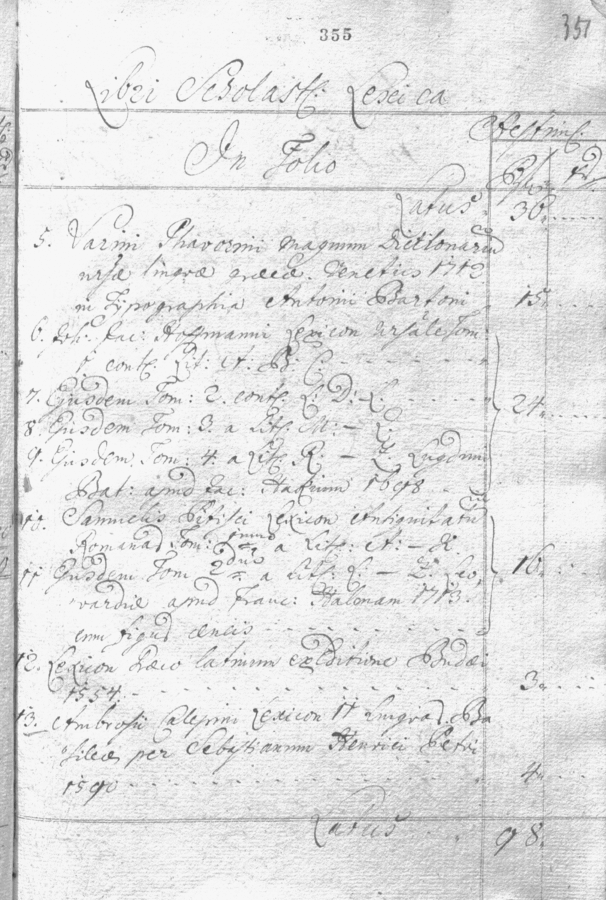 355
351
Libri Scholast: Lexica
Æstim:
In Folio
Latus 36
5. Varini Phavorini magnum Dictionariū
linguæ græcæ. Venetiis 1712
in Typographia Antonii Bartoni 15
6. Joh: Jac: Hoffmanni Lexicon Tom:
1 cont: Lit: A: B: C:
7. Ejusdem Tom: 2. cont: L: D: - L: 24
8. Ejusdem Tom: 3. a Lit: M: -
9. Ejusdem Tom: 4. a Lit: R: - Z. Lugduni
Bat: apud Jac: Hackium 1698
10. Samuelis Pitisci Lexicon Antiquitatū
Romanar Tom: a Lit: A: - K. 16
11 Ejusdem Tom 2dus a Lit: L: - Z. Leo
vardiæ apud Franc: Halmam 1713.
cum figuris æneis
12. Lexicon Græco latinum ex editione Budæi
1554 3
13. Ambrosii Calepini Lexicon 11 Lingvar. Ba
sileæ per Sebastianum Henrici Petri
1590 4
Latus 98